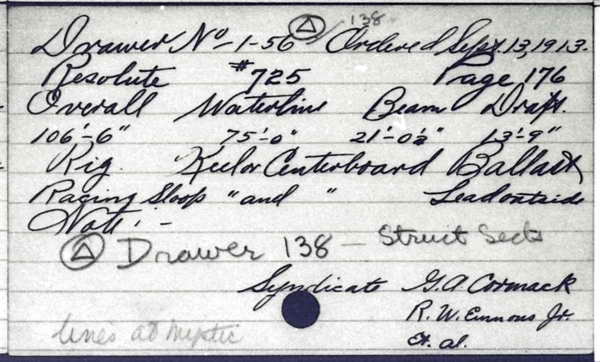 138
Drawer No - 1-56 A Ordered Sept. 13, 1913.
Resolute #725 Page 176
Overall Waterline Beam Draft.
106'-6" 75'-0" 21'-0½" 13'-9"
Rig. Keel or Centerboard Ballast
Racing Sloop "and" Lead outside
Note: -
A Drawer 138 - Struct Sects
Syndicate G.A Cormack
R.W. Emmons Jr.
Et. al.
lines at Mystic